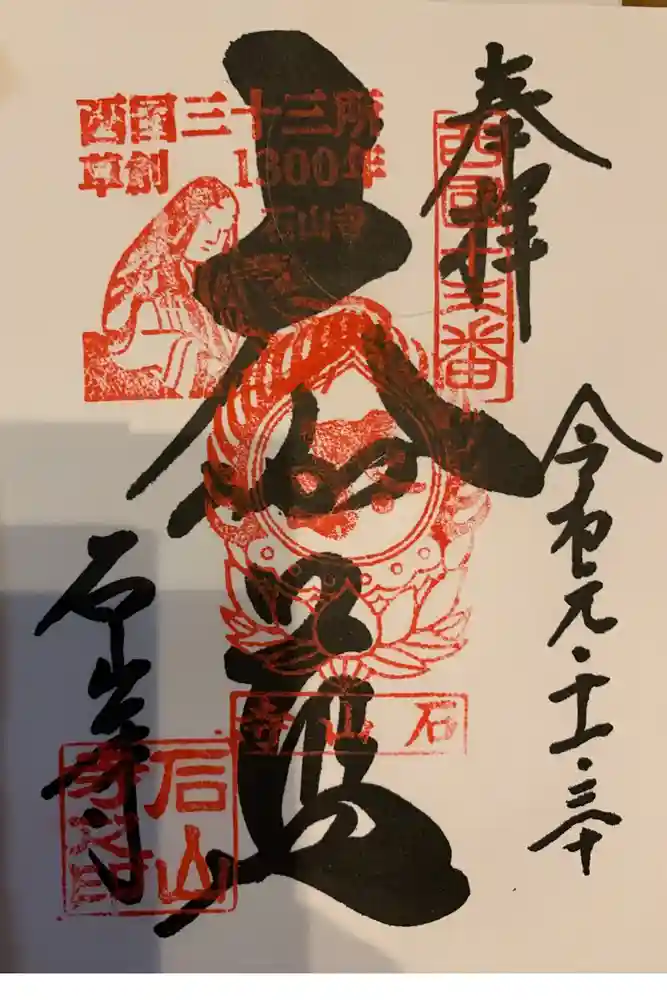 奉拝
西国十三番
令和元・十一・三十
西国三十三所
草創 1300年
石山寺
大伽藍
石山寺
石山寺
石山
寺印